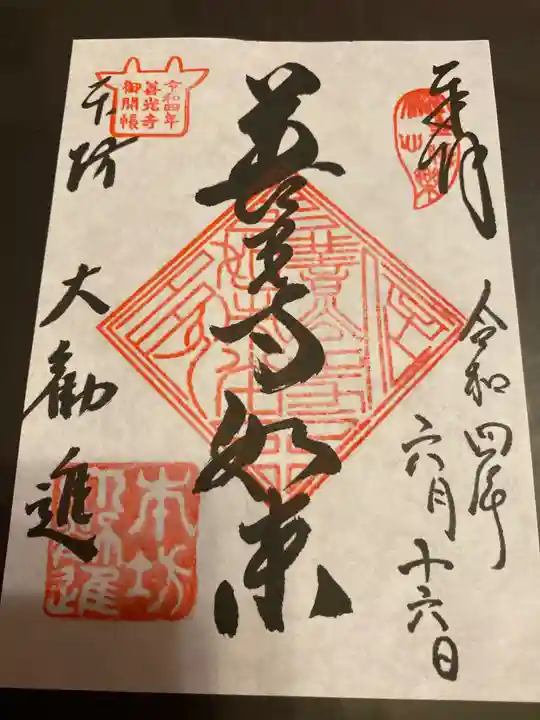 奉拝
令和四年
六月十六日
善光寺如来
令和四年
善光寺
御開帳
本坊
大勧進
本坊